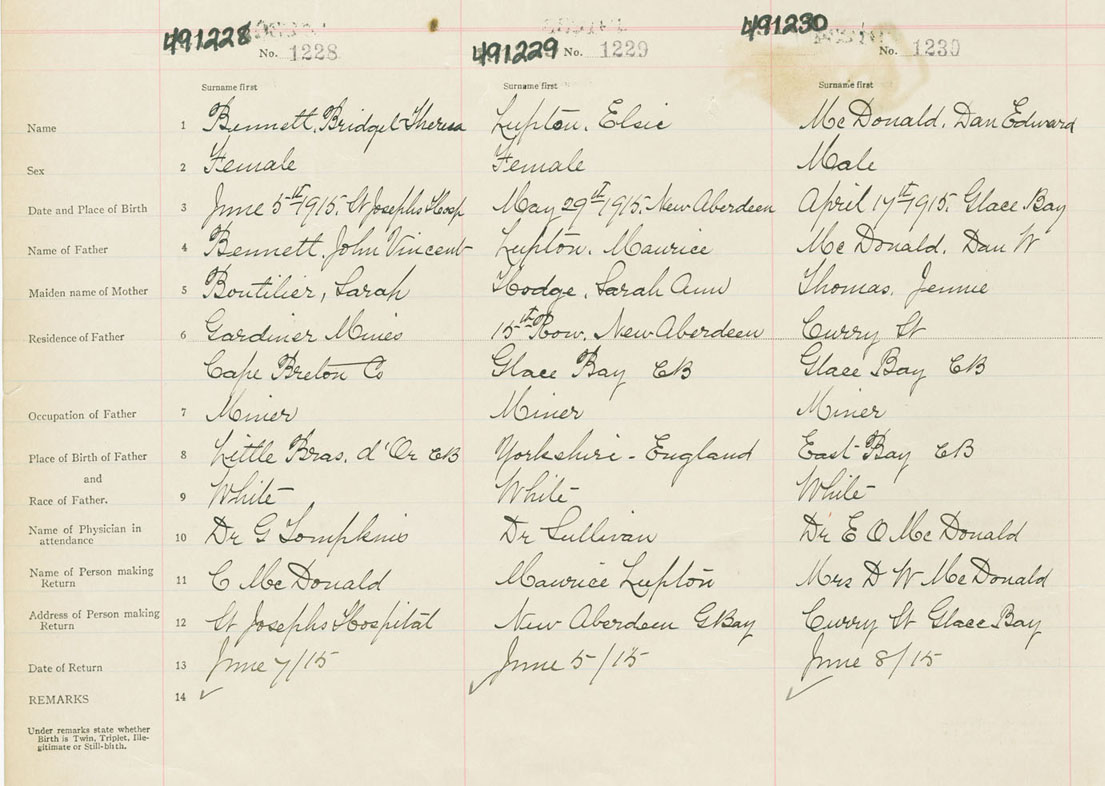 491228 491229 491230
No. 1228 No. 1229 No. 1230
Surname first Surname first Surname first
Name 1 Bennett, Bridget Theresa Lupton, Elsie Mc Donald, Dan Edward
Sex 2 Female Female Male
Date and Place of Birth 3 June 5th 1915. St Josephs Hosp May 29th 1915. New Aberdeen April 17th 1915. Glace Bay
Name of Father 4 Bennett, John Vincent Lupton, Maurice Mc Donald, Dan W
Maiden name of Mother 5 Boutilier, Sarah Hodge, Sarah Ann Thomas, Jennie
Residence of Father 6 Gardiner Mines 15th Row. New Aberdeen Curry St
Cape Breton Co Glace Bay CB Glace Bay CB
Occupation of Father 7 Miner Miner Miner
Place of Birth of Father 8 Little Bras. d'Or CB Yorkshire - England East Bay CB
and
Race of Father. 9 White White White
Name of Physician in
attendance 10 Dr G Tompkins Dr Sullivan Dr E O Mc Donald
Name of Person making
Return 11 C Mc Donald Maurice Lupton Mrs D W Mc Donald
Address of Person making
Return 12 St Josephs Hospital New Aberdeen G Bay Curry St Glace Bay
Date of Return 13 June 7/15 June 5/15 June 8/15
REMARKS 14
Under remarks state whether
Birth is Twin, Triplet, Ille-
gitimate or Still-birth.